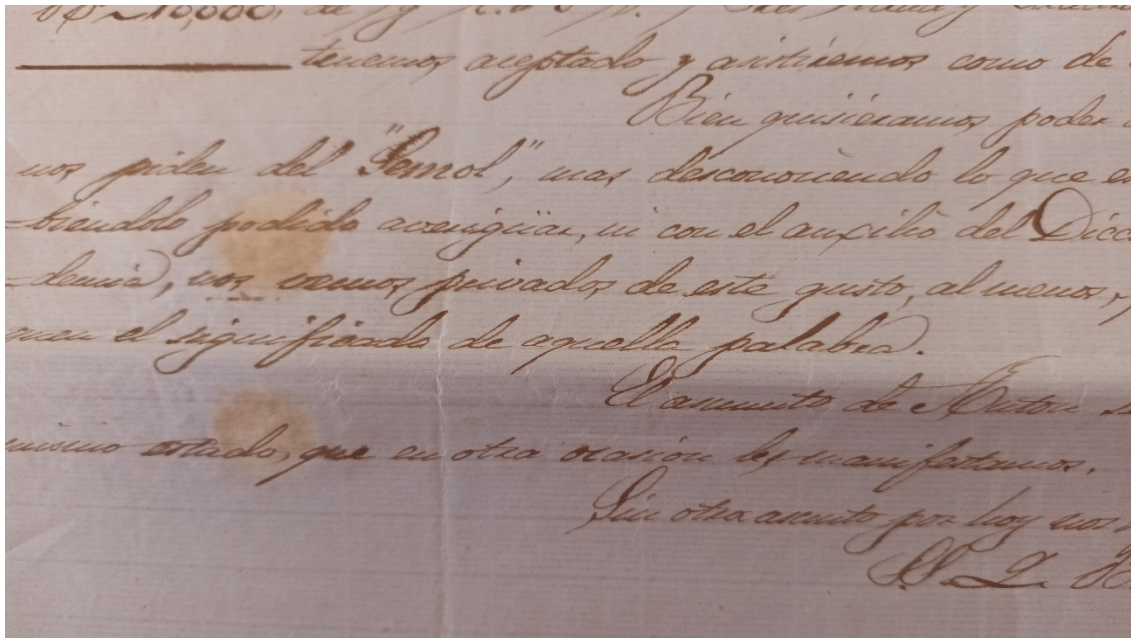 tenemos aceptado y avisaremos como de
Bien quisiéramos poder
nos piden del "Gemol", mas desconociendo lo que
-biéndolo podido averigüar, ni con el auxilio del Dicc
-demia, nos vemos privados de este gusto, al menos,
quen el significado de aquella palabra.
El asunto de
mismo estado, que en otra ocasión les manifestamos.
Sin otro asunto por hoy nos
S. S.